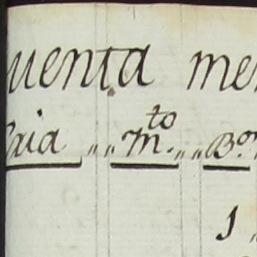 uenta men
Cria „„ M.to „„ B.on
1